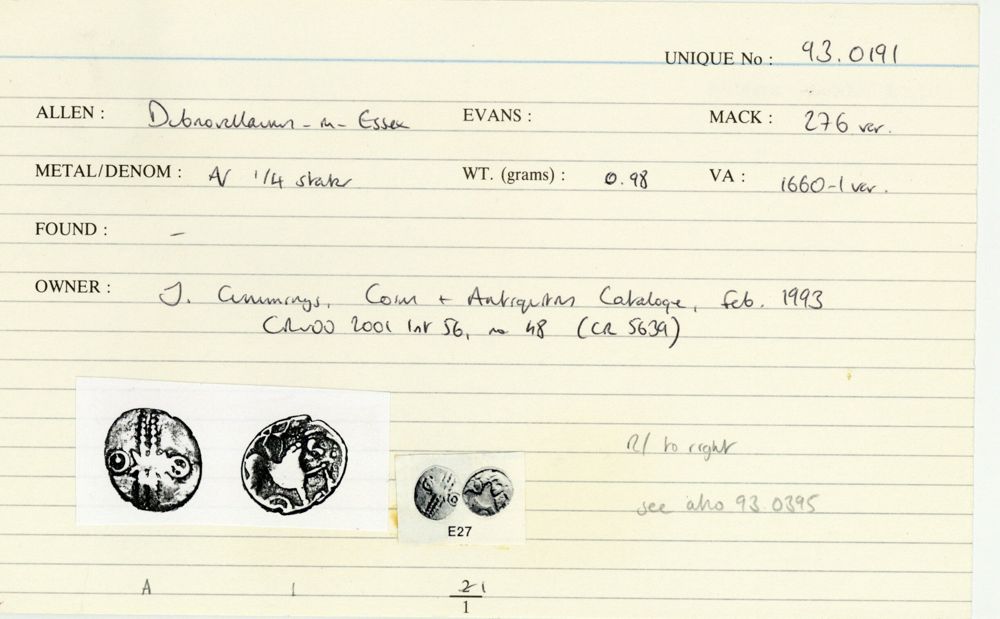 UNIQUE No : 93.0191
ALLEN : Dubnovellaunus-in-Essex EVANS : MACK : 276 var.
METAL/DENOM : AV 1/4 stater WT. (grams) : 0.98 VA : 1660-1 var.
FOUND : –
OWNER : J. Cummings, Coins + Antiquities Catalogue, Feb. 1993
2001 List 56, no 48 (CR 5639)
R/ to right
see also 93.0395
E27
A 1 21
1